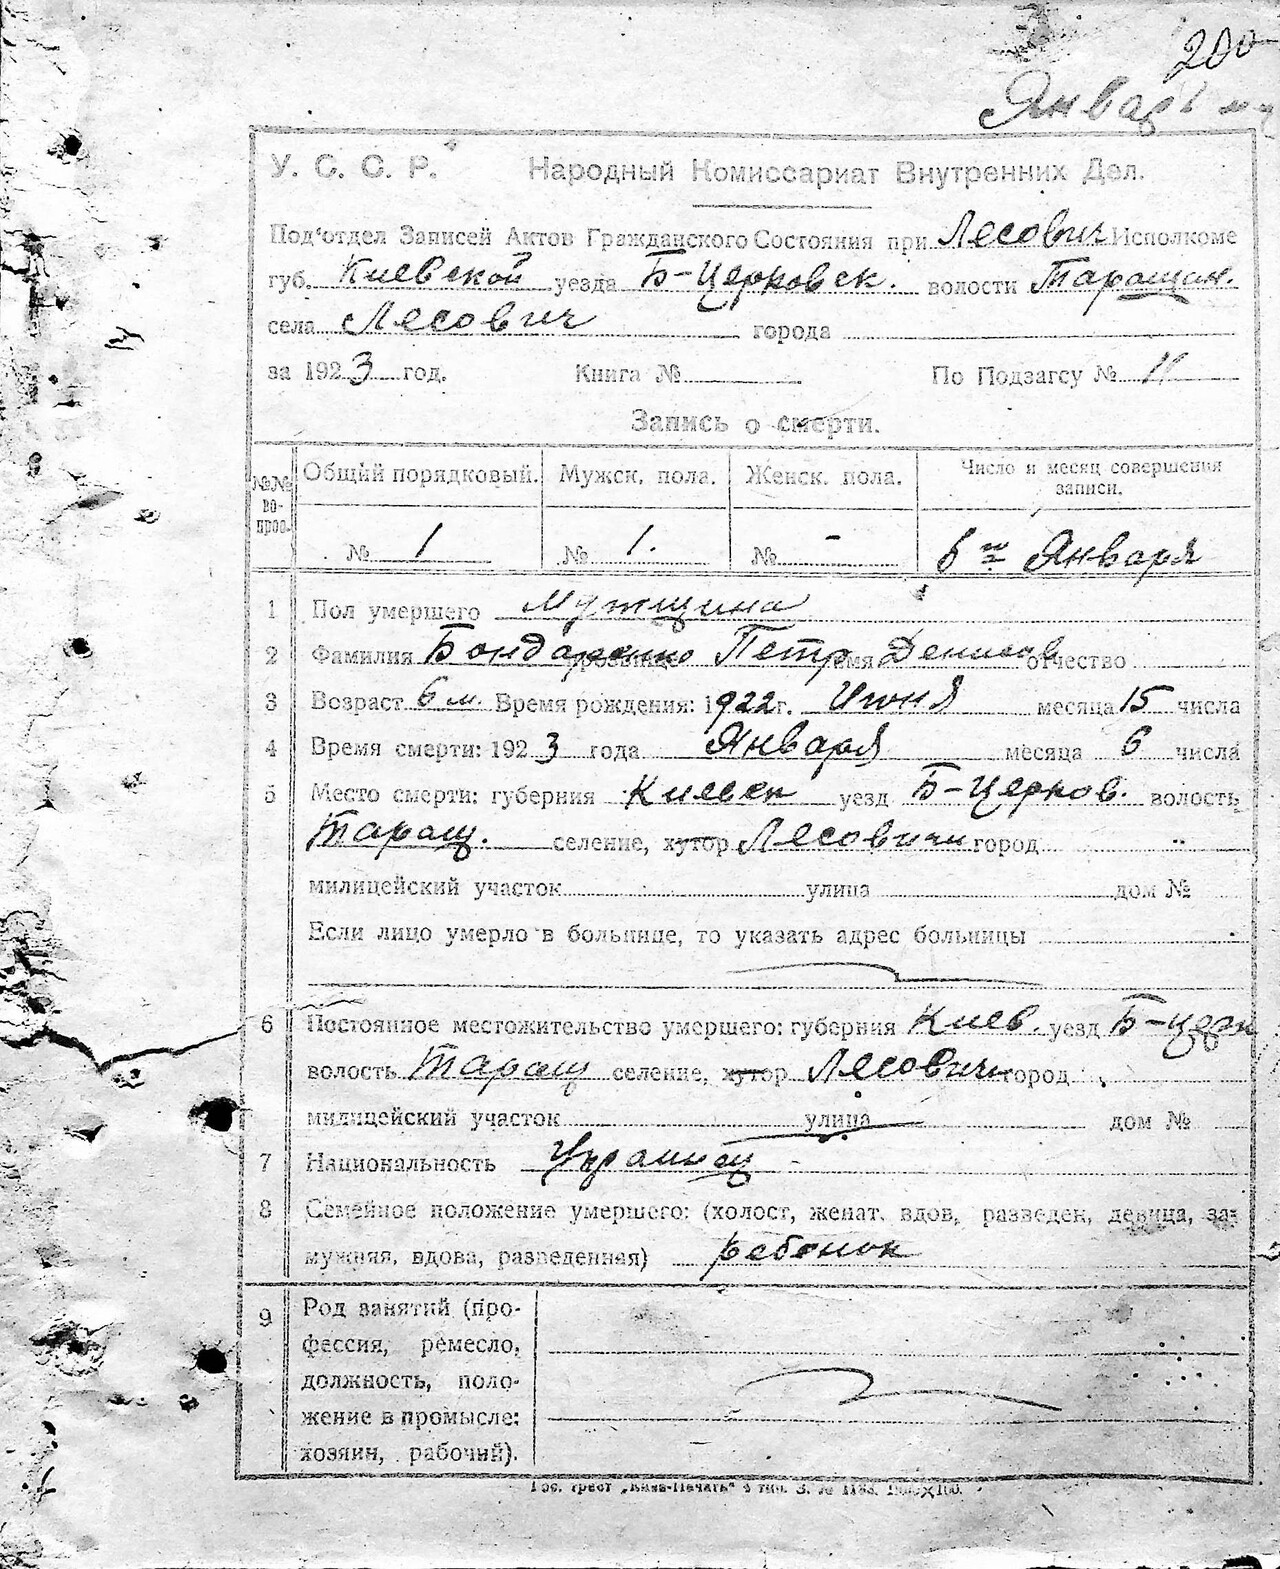 200
Январь м-ц
У. С. С. Р. Народный Комиссариат Внутренних Дел.
Под'отдел Записей Актов Гражданского Состояния при Лесович Исполкоме
губ. Киевской уезда Б-Церковск. волости Таращан.
села Лесович города
за 1923 год. Книга № По Подзагсу № 11
Запись о смерти.
№№ вопрос. Общий порядковый. Мужск. пола. Женск. пола. Число и месяц совершения записи.
№ 1 № 1. № - 6го Января
1 Пол умершего Мужщина
2 Фамилия Бондаренко прозвище Петр имя Денисов отчество
3 Возраст 6 м. Время рождения: 1922 г. Июня месяца 15 числа
4 Время смерти: 1923 года Января месяца 6 числа
5 Место смерти: губерния Киевск уезд Б-Церков. волость
Таращ. селение, хутор Лесовичи город "
милицейский участок улица дом №
Если лицо умерло в больнице, то указать адрес больницы
6 Постоянное местожительство умершего: губерния Киев. уезд Б-Церк
волость Таращ селение, хутор Лесовичи город
милицейский участок улица дом №
7 Национальность Украинец
8 Семейное положение умершего: (холост, женат, вдов, разведен, девица, за-
мужняя, вдова, разведенная) ребенок
9 Род занятий (про-
фессия, ремесло,
должность, поло-
жение в промысле:
хозяин, рабочий).
Гос. трест „Киев-Печать“ 3 тип. З. №